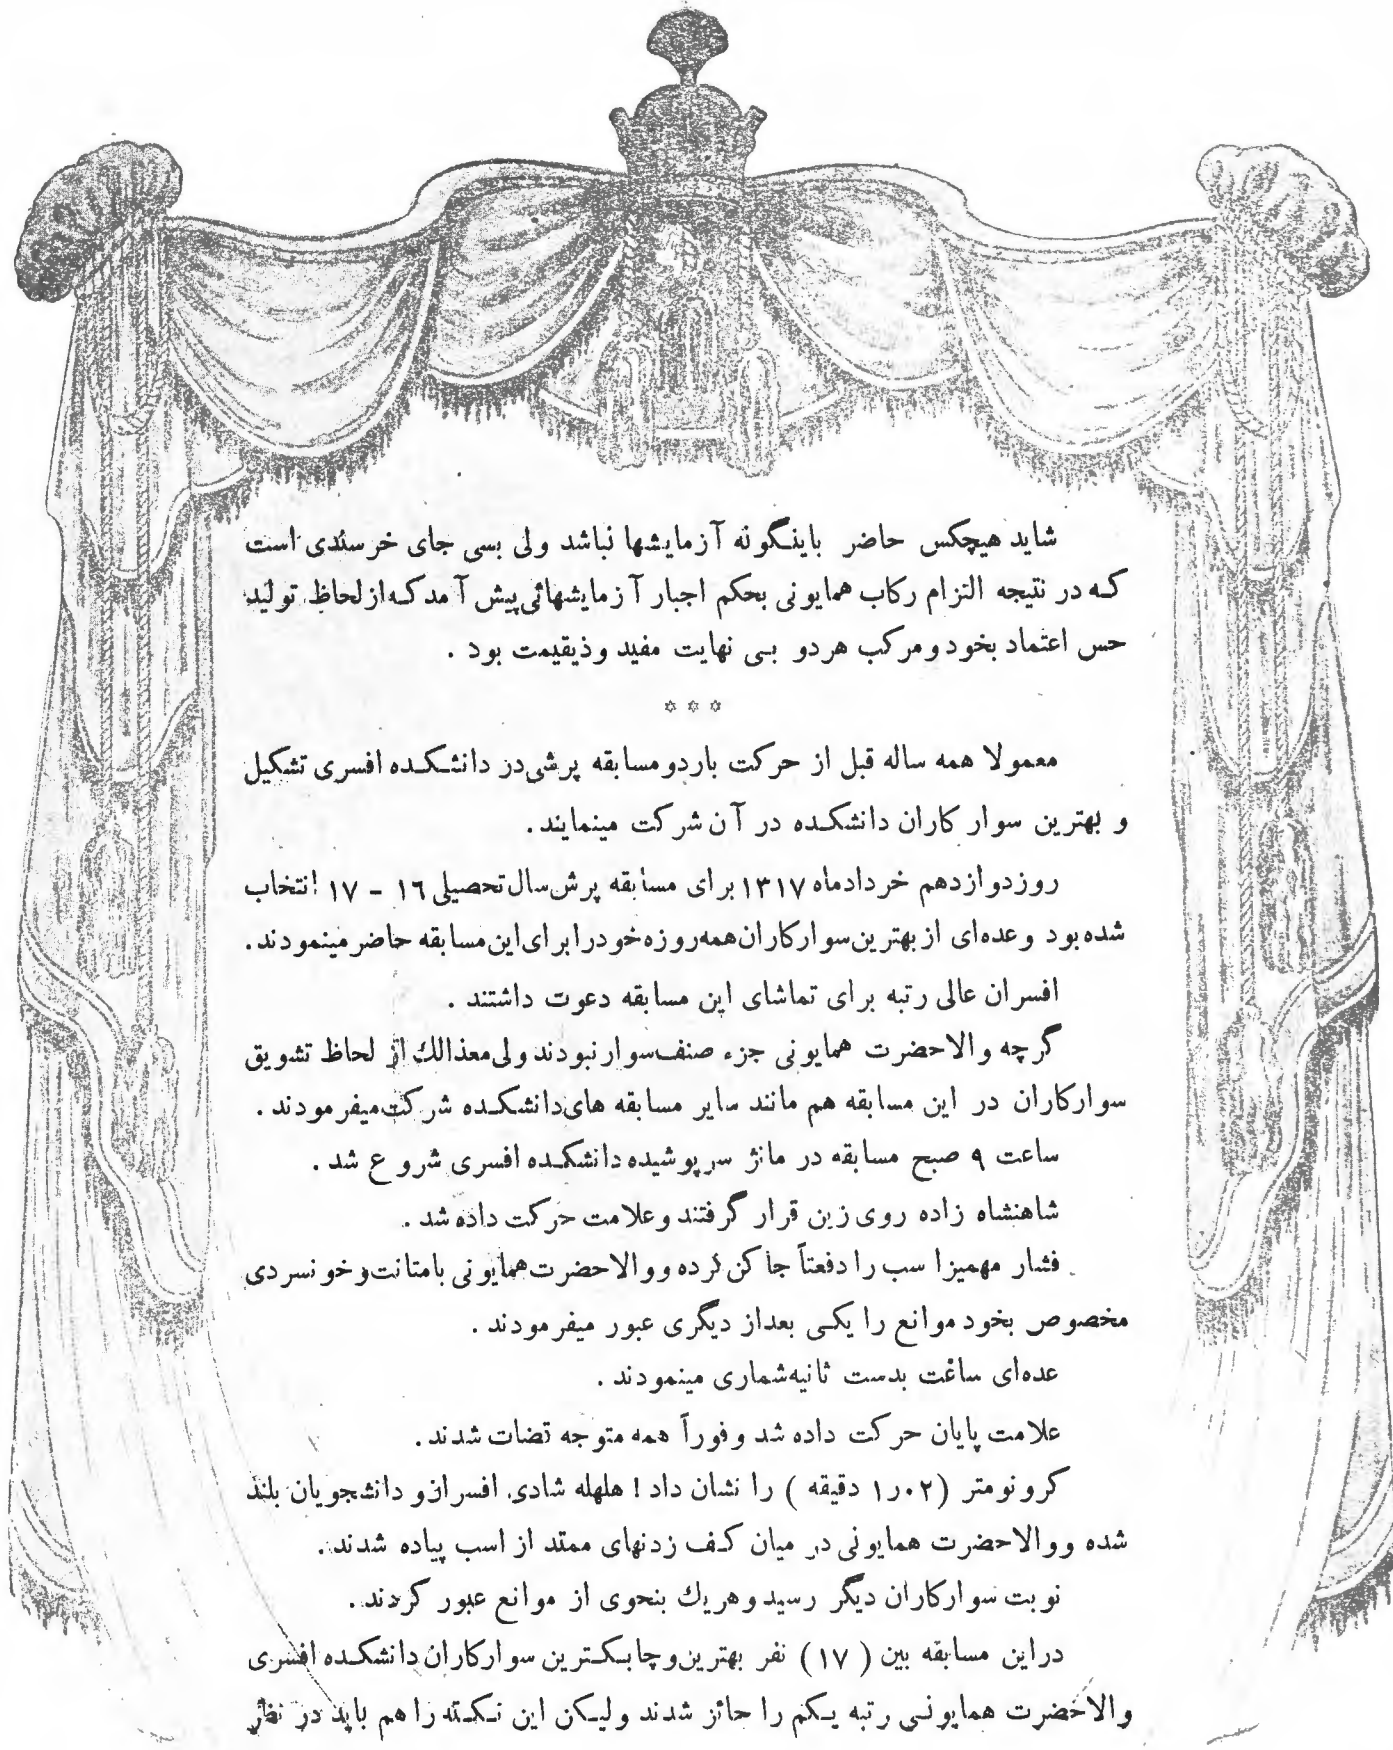 شاید هیچکس حاضر باینگونه آزمایشها نباشد ولی بسی جای خرسندی است
که در نتیجه التزام رکاب همایونی بحکم اجبار آزمایشهائی پیش آمد که از لحاظ تولید
حس اعتماد بخود و مرکب هر دو بی نهایت مفید و ذیقیمت بود .
✡ ✡ ✡
معمولا همه ساله قبل از حرکت باردو مسابقه پرشی در دانشکده افسری تشکیل
و بهترین سوار کاران دانشکده در آن شرکت مینمایند .
روز دوازدهم خرداد ماه ۱۳۱۷ برای مسابقه پرش سال تحصیلی ۱٦ - ۱۷ انتخاب
شده بود و عده‌ای از بهترین سوارکاران همه روزه خود را برای این مسابقه حاضر مینمودند .
افسران عالی رتبه برای تماشای این مسابقه دعوت داشتند .
گرچه والاحضرت همایونی جزء صنف سوار نبودند ولی معذالك از لحاظ تشویق
سوارکاران در این مسابقه هم مانند سایر مسابقه های دانشکده شرکت میفرمودند .
ساعت ۹ صبح مسابقه در مانژ سرپوشیده دانشکده افسری شروع شد .
شاهنشاه زاده روی زین قرار گرفتند و علامت حرکت داده شد .
فشار مهمیز اسب را دفعتاً جا کن کرده و والاحضرت همایونی با متانت و خونسردی
مخصوص بخود موانع را یکی بعد از دیگری عبور میفرمودند .
عده‌ای ساعت بدست ثانیه شماری مینمودند .
علامت پایان حرکت داده شد و فوراً همه متوجه قضات شدند .
کرونومتر (۱ر۰۲ دقیقه ) را نشان داد ! هلهله شادی افسران و دانشجویان بلند
شده و والاحضرت همایونی در میان کف زدنهای ممتد از اسب پیاده شدند .
نوبت سوارکاران دیگر رسید و هر یك بنحوی از موانع عبور کردند .
در این مسابقه بین ( ۱۷ ) نفر بهترین و چابکترین سوارکاران دانشکده افسری
والاحضرت همایونی رتبه یکم را حائز شدند ولیکن این نکته را هم باید در نظر